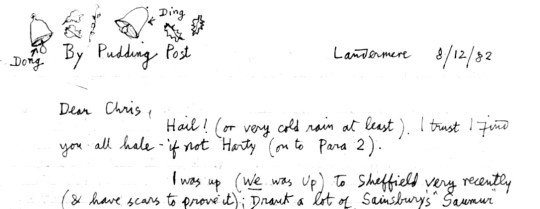 Ding
Dong
By Pudding Post
Landermere 8/12/82
Dear Chris,
Hail! (or very cold rain at least). I trust I find
you all hale - if not Harty (on to Para 2).
I was up (We was Up) to Sheffield very recently
(& have scars to prove it); Drank a lot of Sainsbury's Saumur